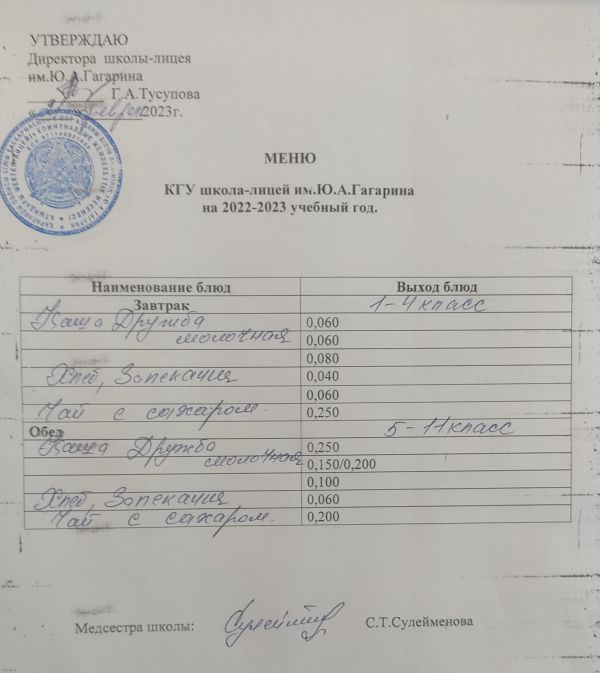 УТВЕРЖДАЮ
Директора школы-лицея
им.Ю.А.Гагарина
Г.А.Тусупова
« февраля 2023г.
МЕНЮ
КГУ школа-лицей им.Ю.А.Гагарина
на 2022-2023 учебный год.
Наименование блюд Выход блюд
Завтрак 1-4 класс
Каша Дружба 0,060
молочная 0,060
0,080
Хлеб, Запеканка 0,040
0,060
Чай с сахаром. 0,250
Обед 5-11 класс
Каша Дружба 0,250
молочная 0,150/0,200
0,100
Хлеб, Запеканка 0,060
Чай с сахаром. 0,200
Медсестра школы: С.Т.Сулейменова